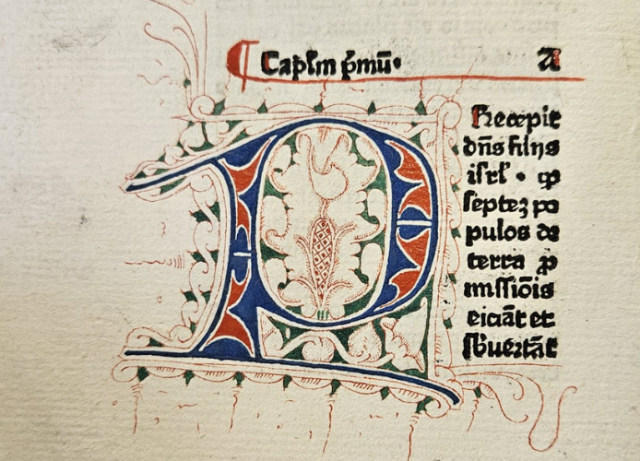 Capl̄m p̄mū· A
P
Recepit
dn̄s filijs
isrl̄ · ꝙ
septeꝫ po
pulos de
terra ꝓ
missiōis
eiciāt et
sb̄uertāt